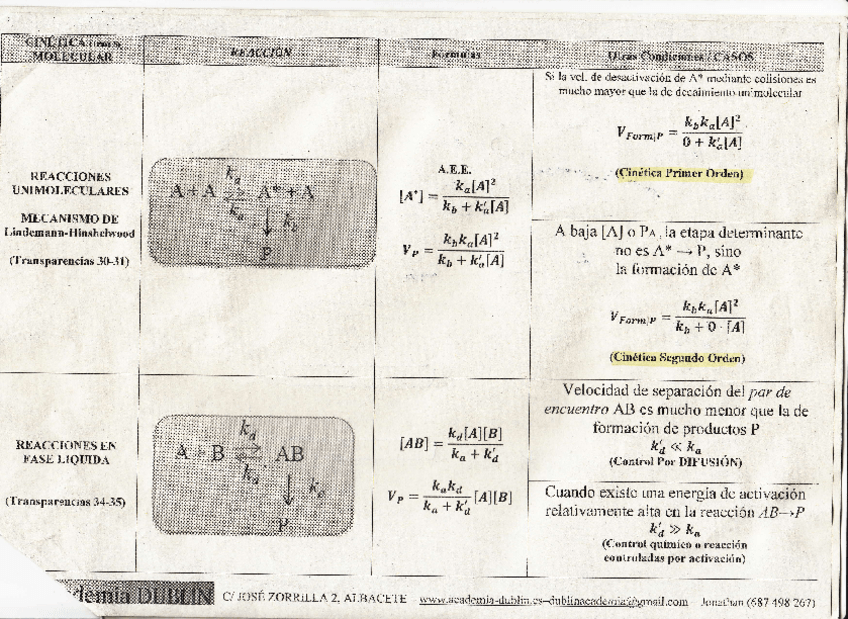 CINÉTICA
MOLECULAR
REACCIÓN
Formulas
Otras Condiciones / CASOS
REACCIONES
UNIMOLECULARES
MECANISMO DE
Lindemann-Hinshelwood
(Transparencias 30-31)
A + A ⇌ A* + A
k_a
k_a
k_b
P
A.E.E.
[A*] = k_a[A]² / (k_b + k'_a[A])
V_P = k_b k_a[A]² / (k_b + k'_a[A])
Si la vel. de desactivación de A* mediante colisiones es
mucho mayor que la de decaimiento unimolecular
V_Form|P = k_b k_a[A]² / (0 + k'_a[A])
(Cinética Primer Orden)
A baja [A] o PA, la etapa determinante
no es A* → P, sino
la formación de A*
V_Form|P = k_b k_a[A]² / (k_b + 0 · [A])
(Cinética Segundo Orden)
REACCIONES EN
FASE LIQUIDA
(Transparencias 34-35)
A + B ⇌ AB
k_d
k_d
k_a
P
[AB] = k_d[A][B] / (k_a + k'_d)
V_P = k_a k_d / (k_a + k'_d) [A][B]
Velocidad de separación del par de
encuentro AB es mucho menor que la de
formación de productos P
k'_d ≪ k_a
(Control Por DIFUSIÓN)
Cuando existe una energía de activación
relativamente alta en la reacción AB→P
k'_d ≫ k_a
(Control químico o reacción
controladas por activación)
demia DUBLIN C/ JOSÉ ZORRILLA 2, ALBACETE – www.academia-dublin.es–dublinacademia@gmail.com – Jonathan (687 498 267)